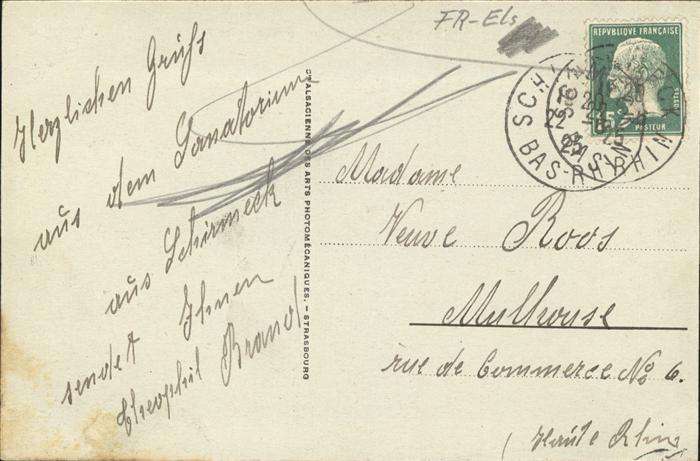 FR-Els
REPVBLIQVE FRANÇAISE
POSTES
PASTEUR
BAS-RHIN
Herzlichen Grüss
aus dem Sanatorium
aus Schirmeck
sendet Ihnen
Theophil Brand
Cie ALSACIENNE DES ARTS PHOTOMÉCANIQUES. – STRASBOURG
Madame
Veuve Roos
Mulhouse
rue de Commerce No 6.
(Haute Rhin